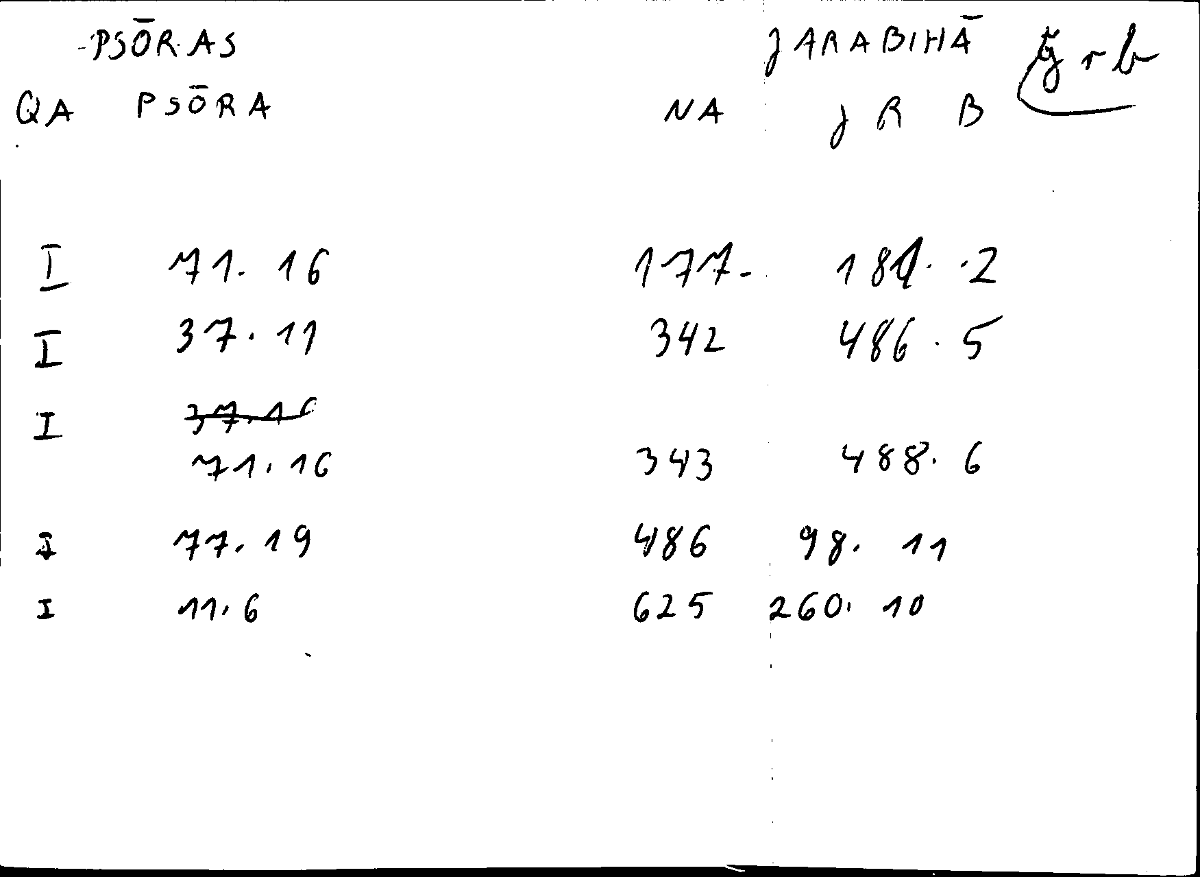 -PSŌRAS JARABIHĀ ǧrb
QA PSŌRA NA J R B
I 71. 16 177. 181. 2
I 37. 11 342 486. 5
I 37.16
71.16 343 488. 6
I 77. 19 486 98. 11
I 11.6 625 260. 10